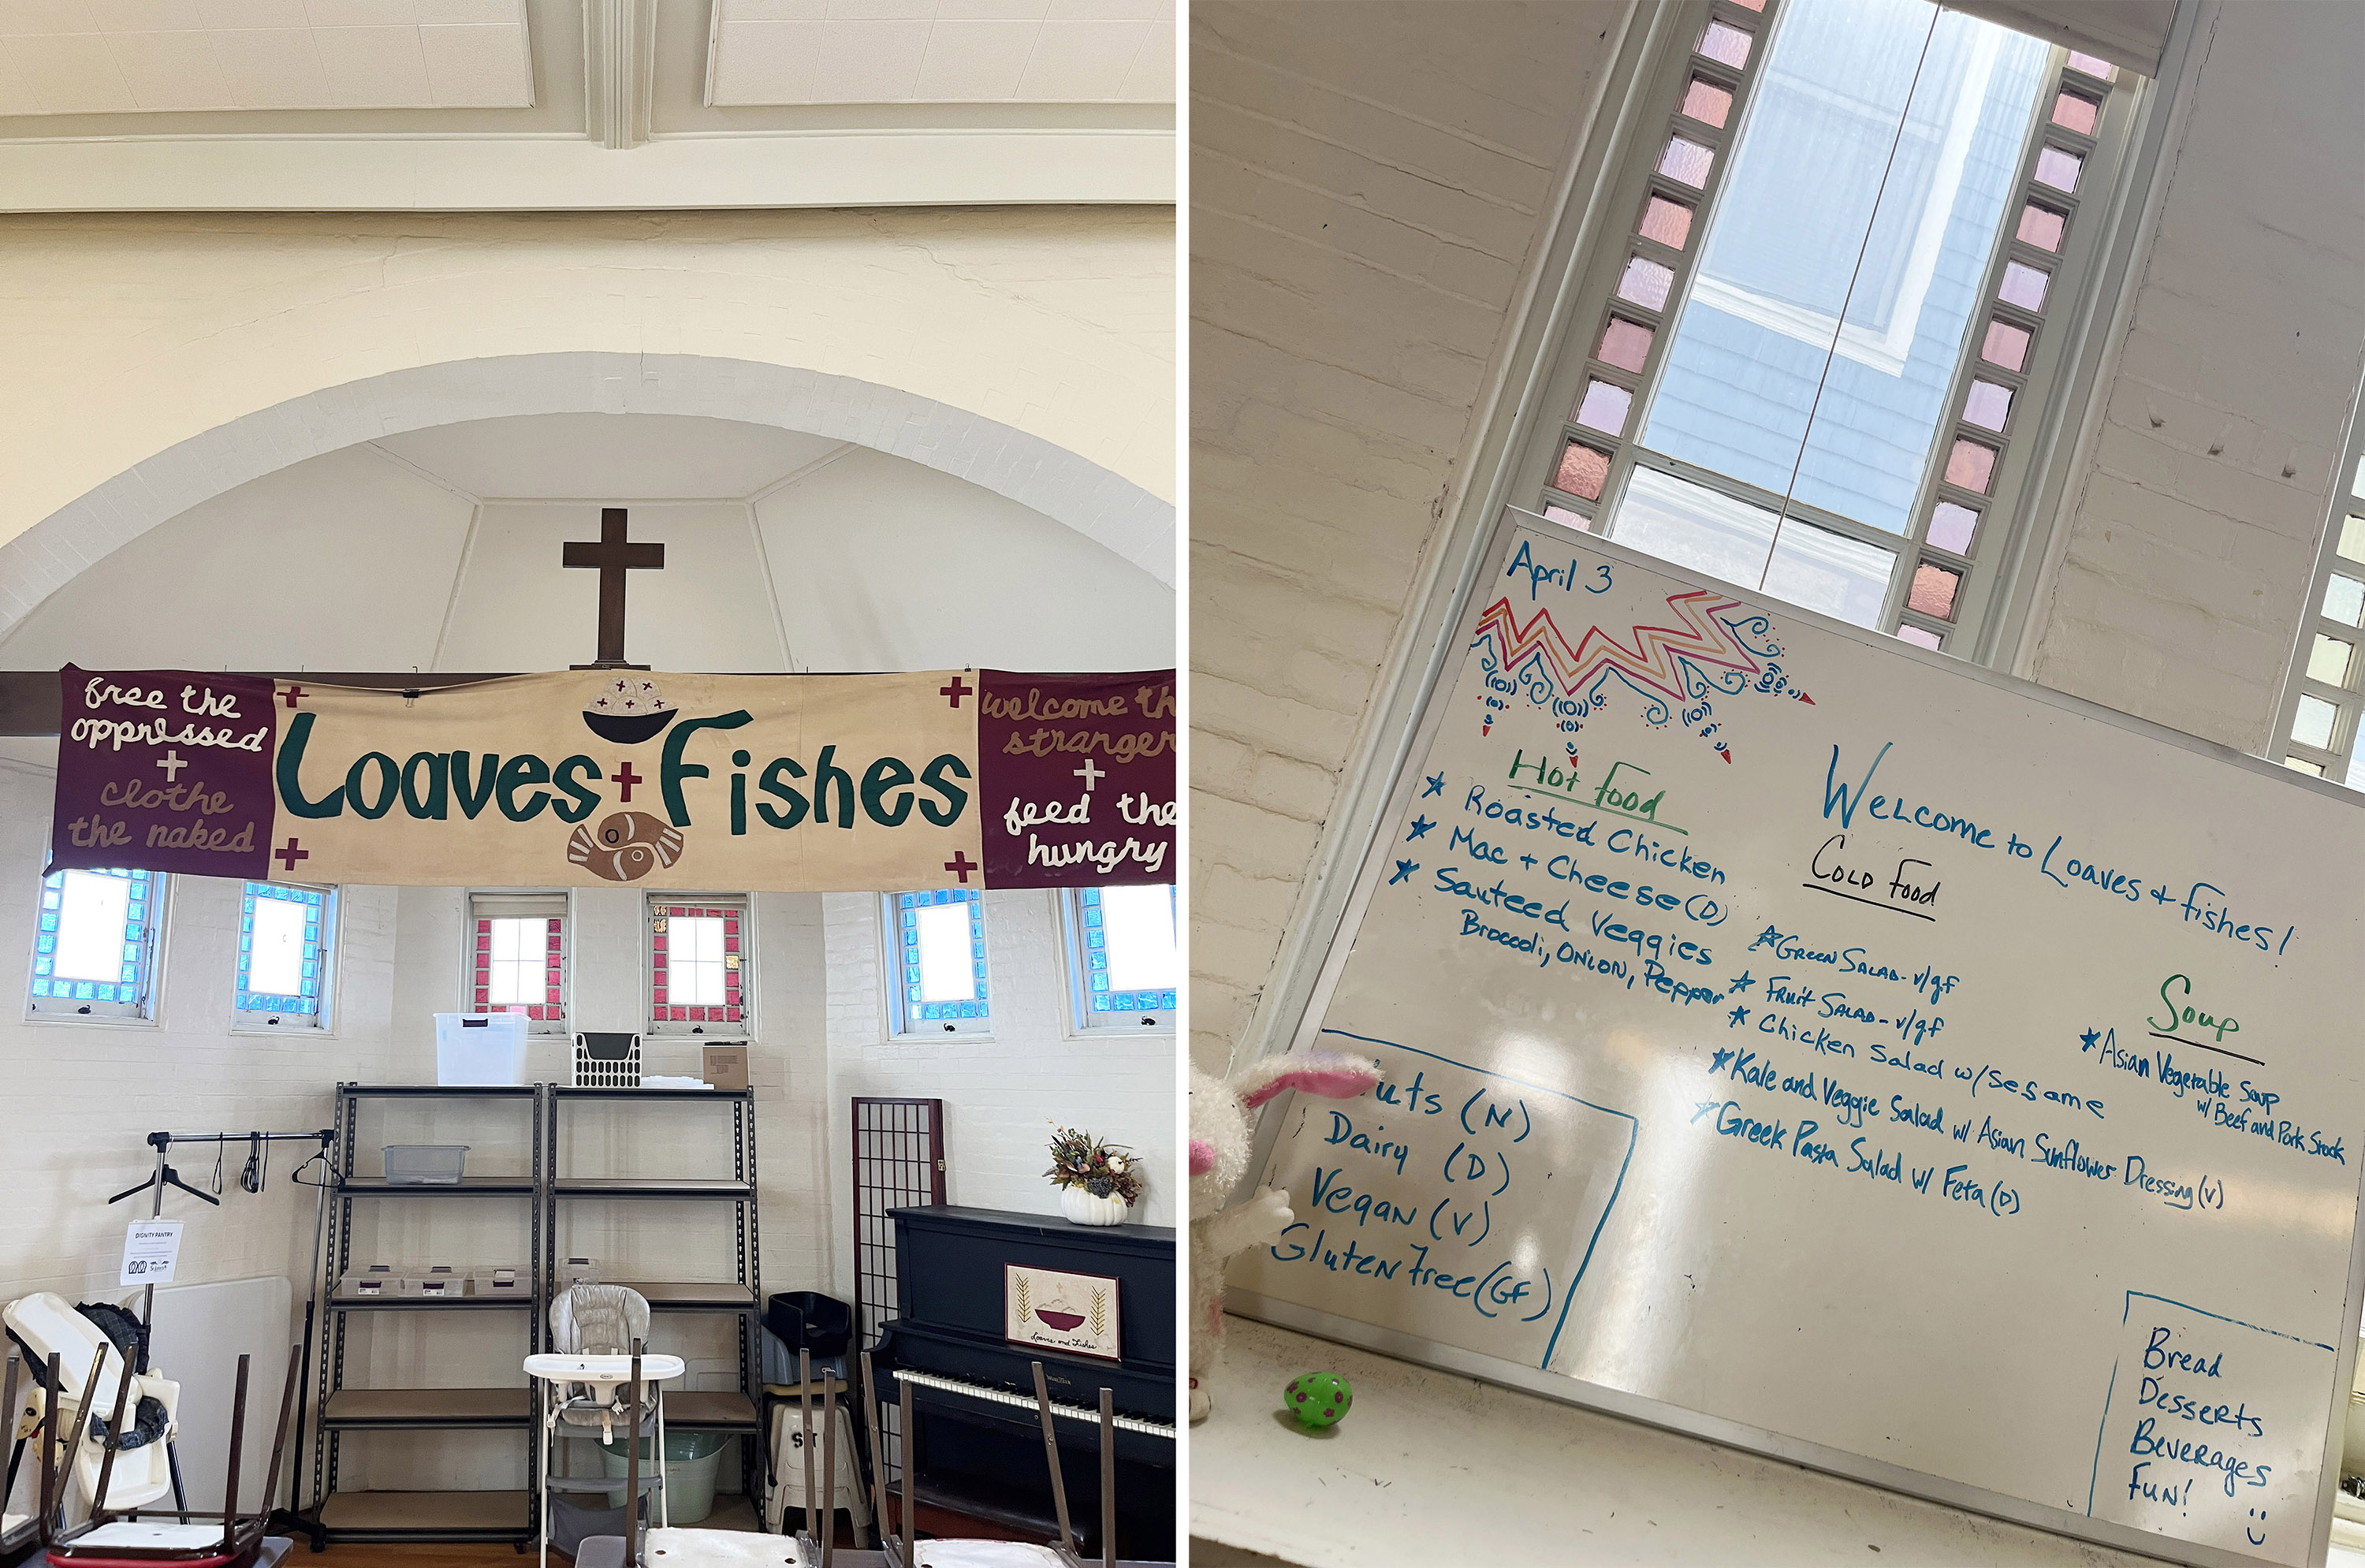 free the
oppressed
clothe
the naked
Loaves + Fishes
welcome th
stranger
feed the
hungry
DIGNITY PANTRY
Loaves and Fishes
April 3
Welcome to Loaves & Fishes!
Hot Food
★ Roasted Chicken
★ Mac + Cheese (D)
★ Sauteed Veggies
Broccoli, Onion, Pepper
Cold Food
★ Green Salad - v/gf
★ Fruit Salad - v/gf
★ Chicken Salad w/ Sesame
★ Kale and Veggie Salad w/ Asian Sunflower Dressing (v)
★ Greek Pasta Salad w/ Feta (D)
Soup
★ Asian Vegetable Soup
w/ Beef and Pork Stock
uts (N)
Dairy (D)
Vegan (V)
Gluten Free (GF)
Bread
Desserts
Beverages
Fun!